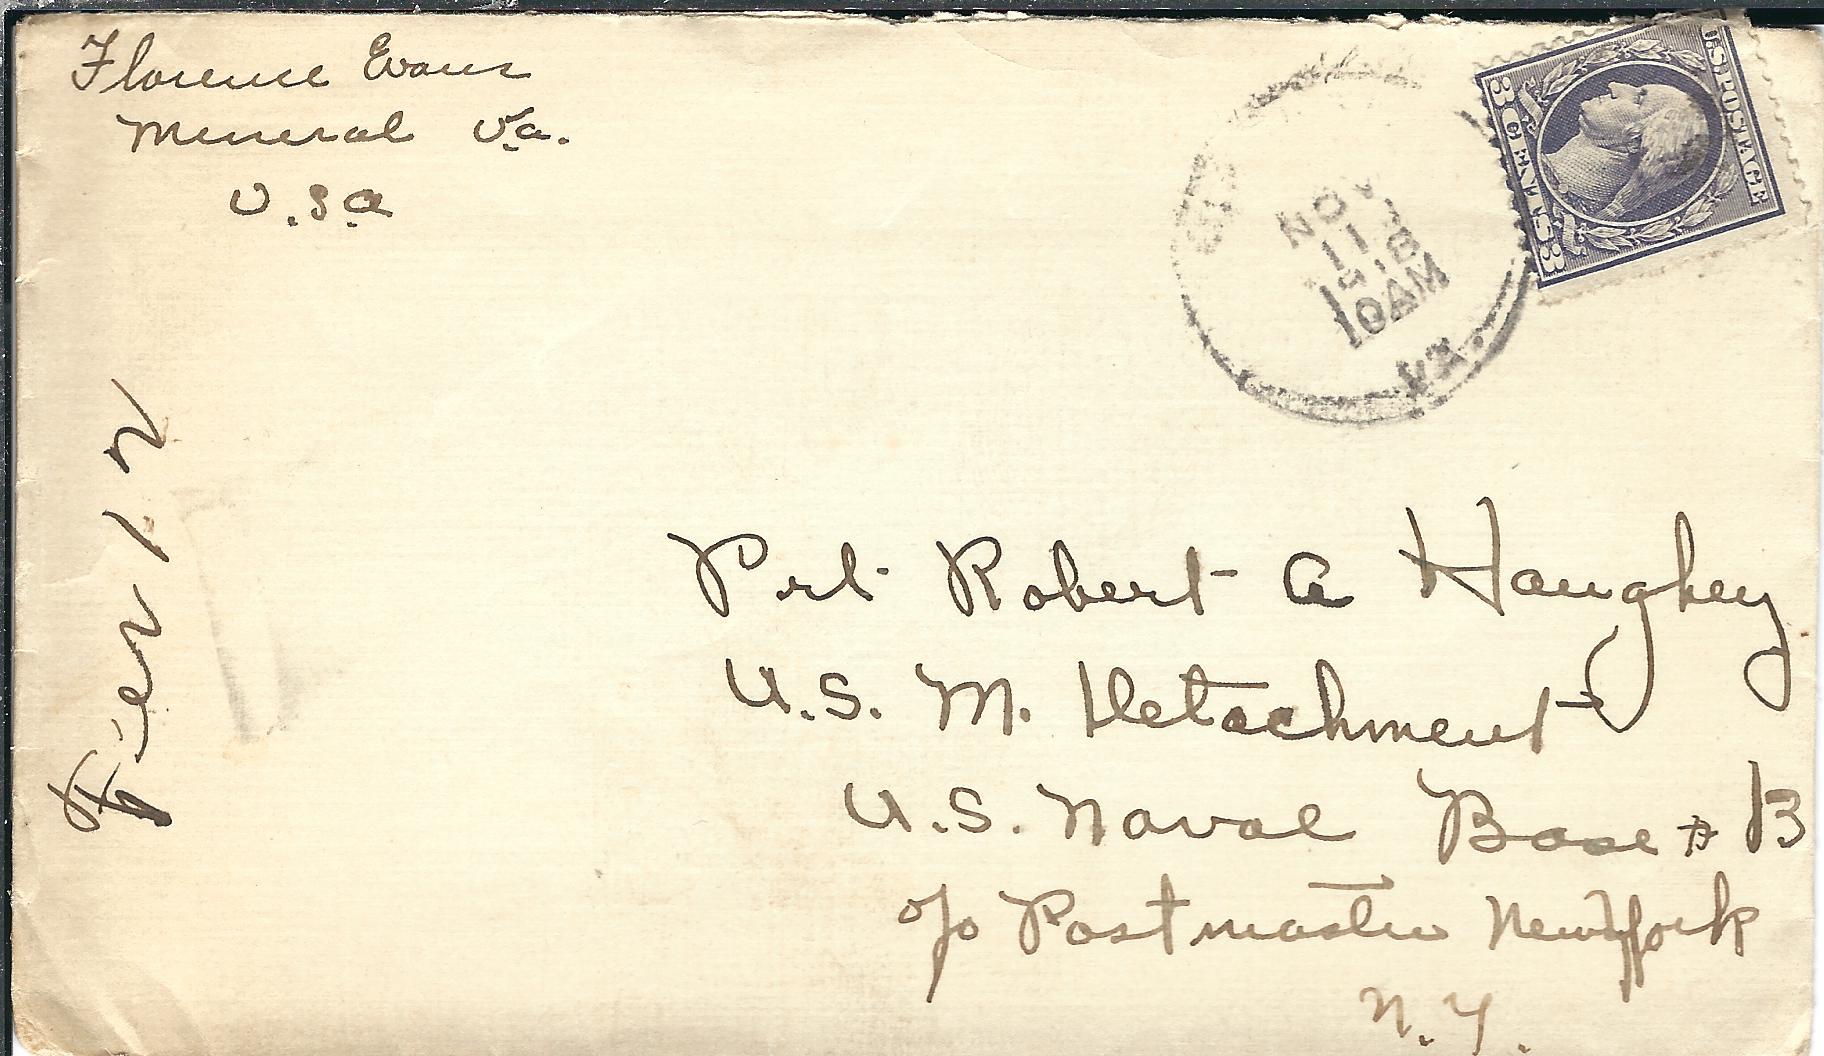 Florence Evans
Mineral Va.
U.S.A
U.S. POSTAGE
3 CENTS 3
NOV
11
1918
10AM
VA.
Pvt Robert A Haughey
U.S. M. Detachment
U.S. Naval Base # 13
c/o Postmaster New York
N.Y.